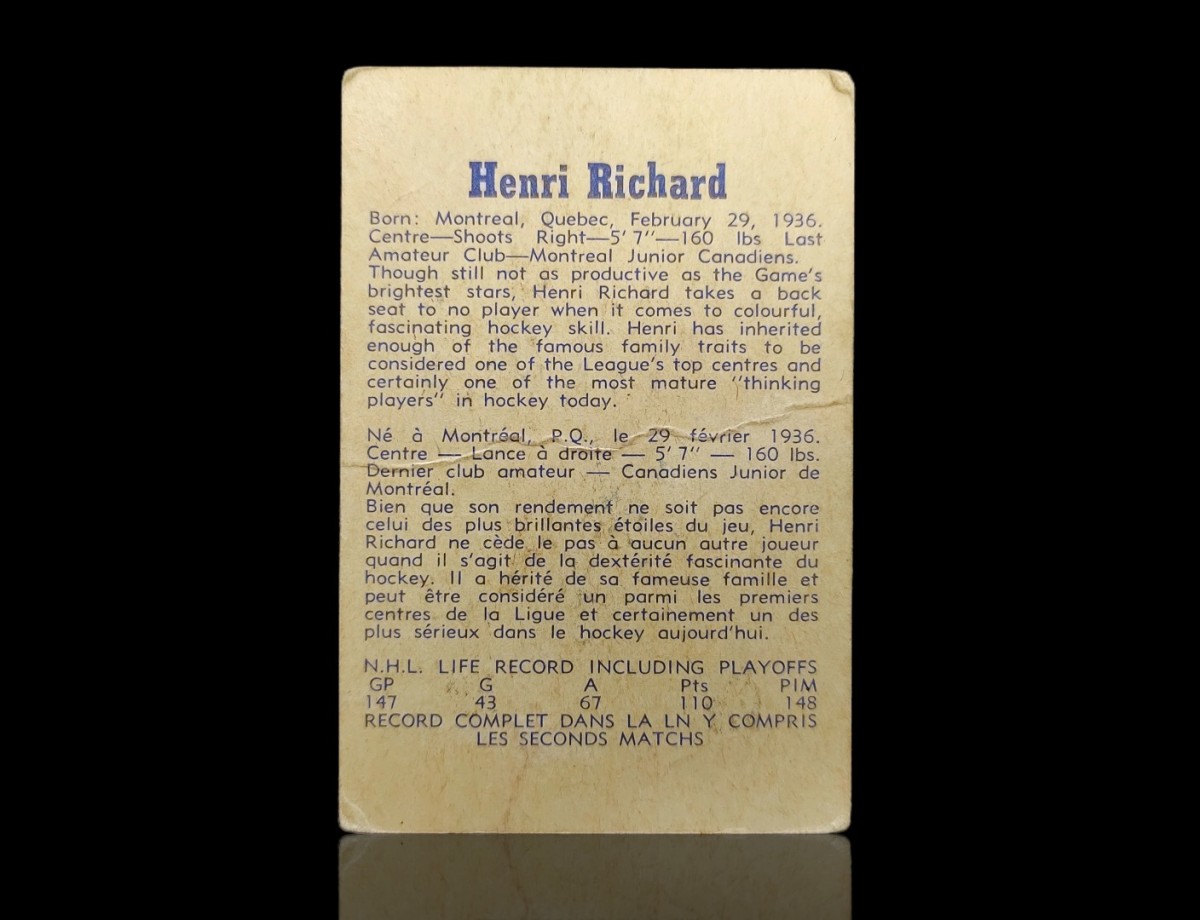 Henri Richard
Born: Montreal, Quebec, February 29, 1936.
Centre—Shoots Right—5' 7"—160 lbs Last
Amateur Club—Montreal Junior Canadiens.
Though still not as productive as the Game's
brightest stars, Henri Richard takes a back
seat to no player when it comes to colourful,
fascinating hockey skill. Henri has inherited
enough of the famous family traits to be
considered one of the League's top centres and
certainly one of the most mature "thinking
players" in hockey today.
Né à Montréal, P.Q., le 29 février 1936.
Centre — Lance à droite — 5' 7" — 160 lbs.
Dernier club amateur — Canadiens Junior de
Montréal.
Bien que son rendement ne soit pas encore
celui des plus brillantes étoiles du jeu, Henri
Richard ne cède le pas à aucun autre joueur
quand il s'agit de la dextérité fascinante du
hockey. Il a hérité de sa fameuse famille et
peut être considéré un parmi les premiers
centres de la Ligue et certainement un des
plus sérieux dans le hockey aujourd'hui.
N.H.L. LIFE RECORD INCLUDING PLAYOFFS
GP G A Pts PIM
147 43 67 110 148
RECORD COMPLET DANS LA LN Y COMPRIS
LES SECONDS MATCHS